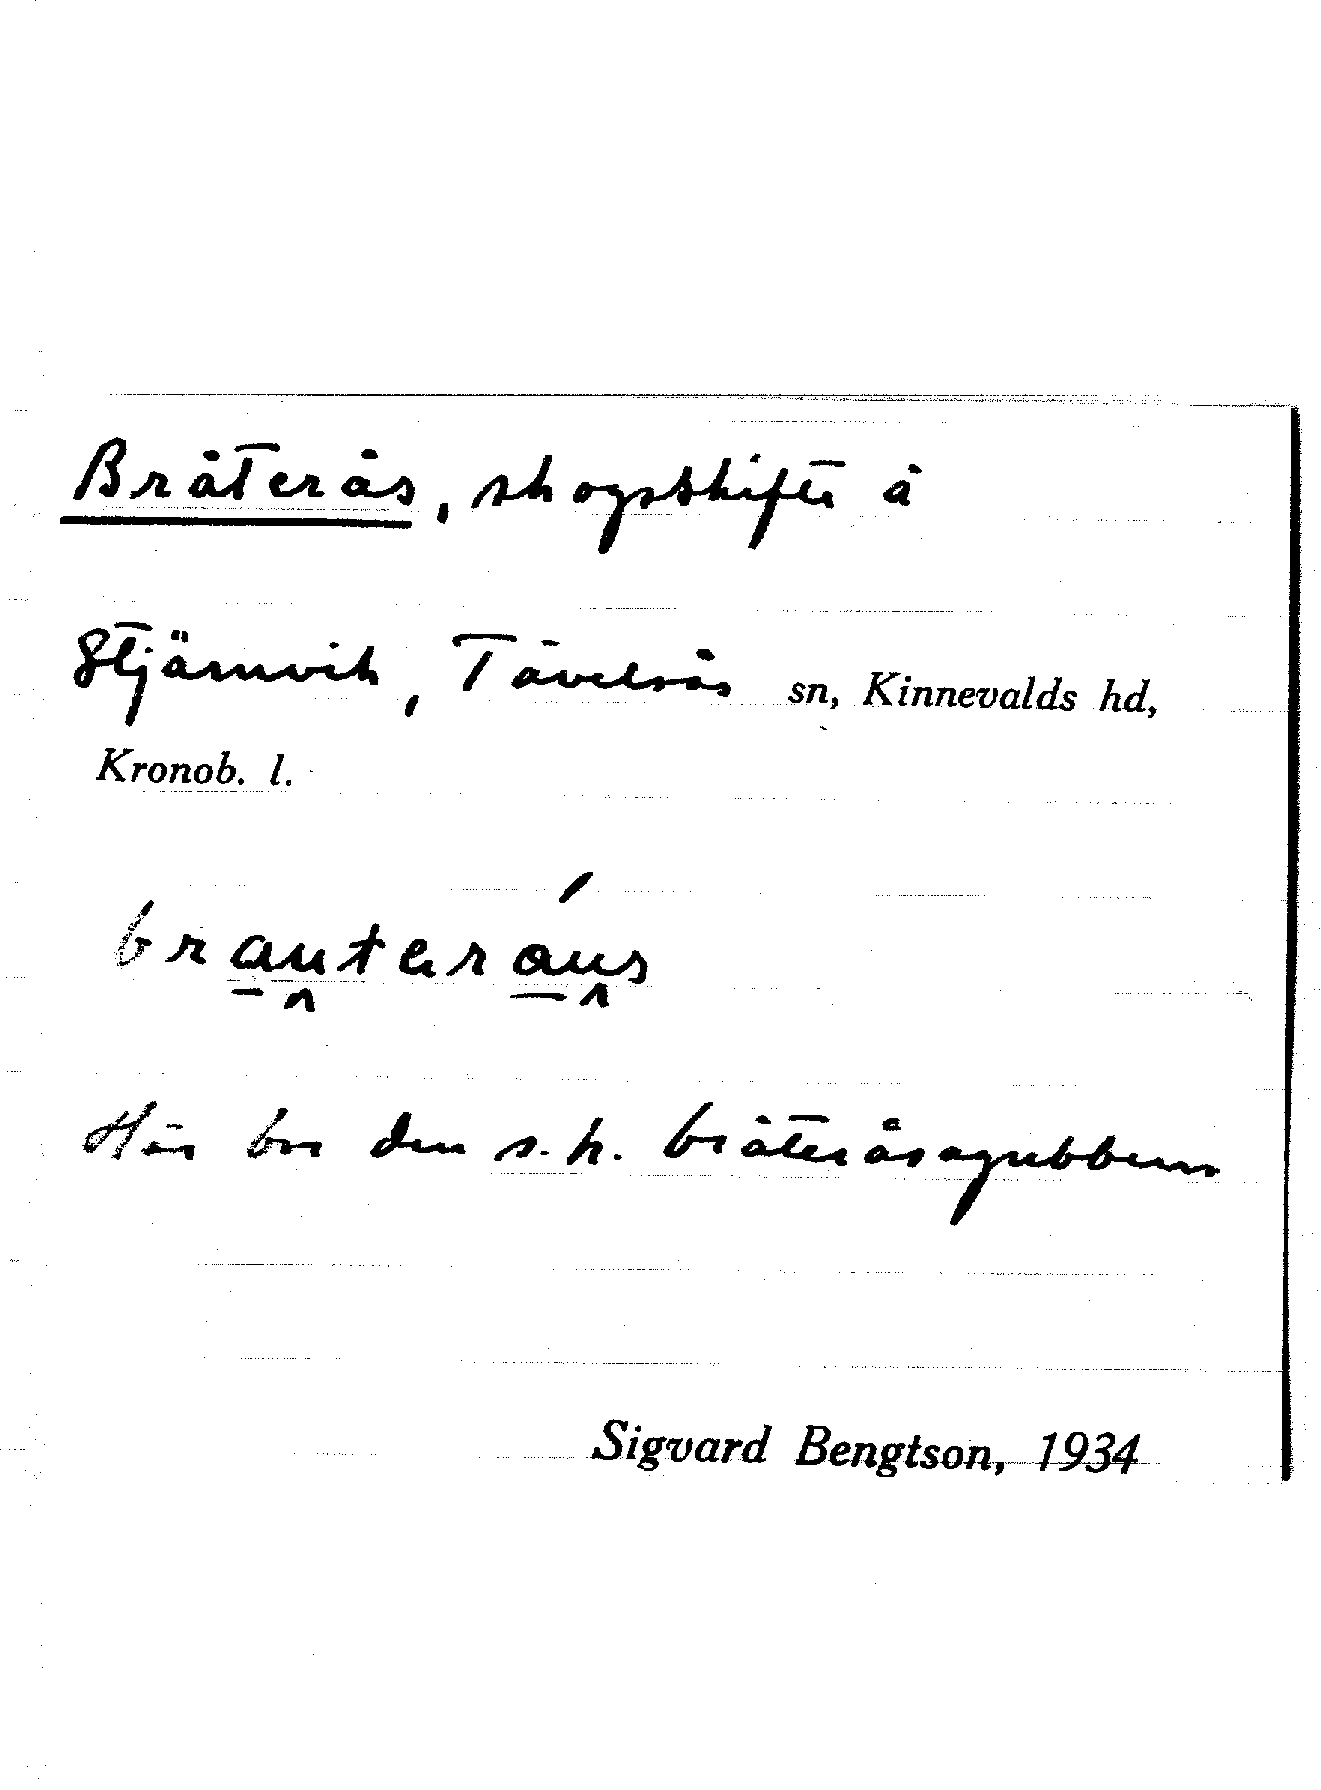 Bråterås, skogsskifte å
Stjärnvik, Tävelsås sn, Kinnevalds hd,
Kronob. l.
brauteráus
Här bor den s.k. bråteråsagubben
Sigvard Bengtson, 1934